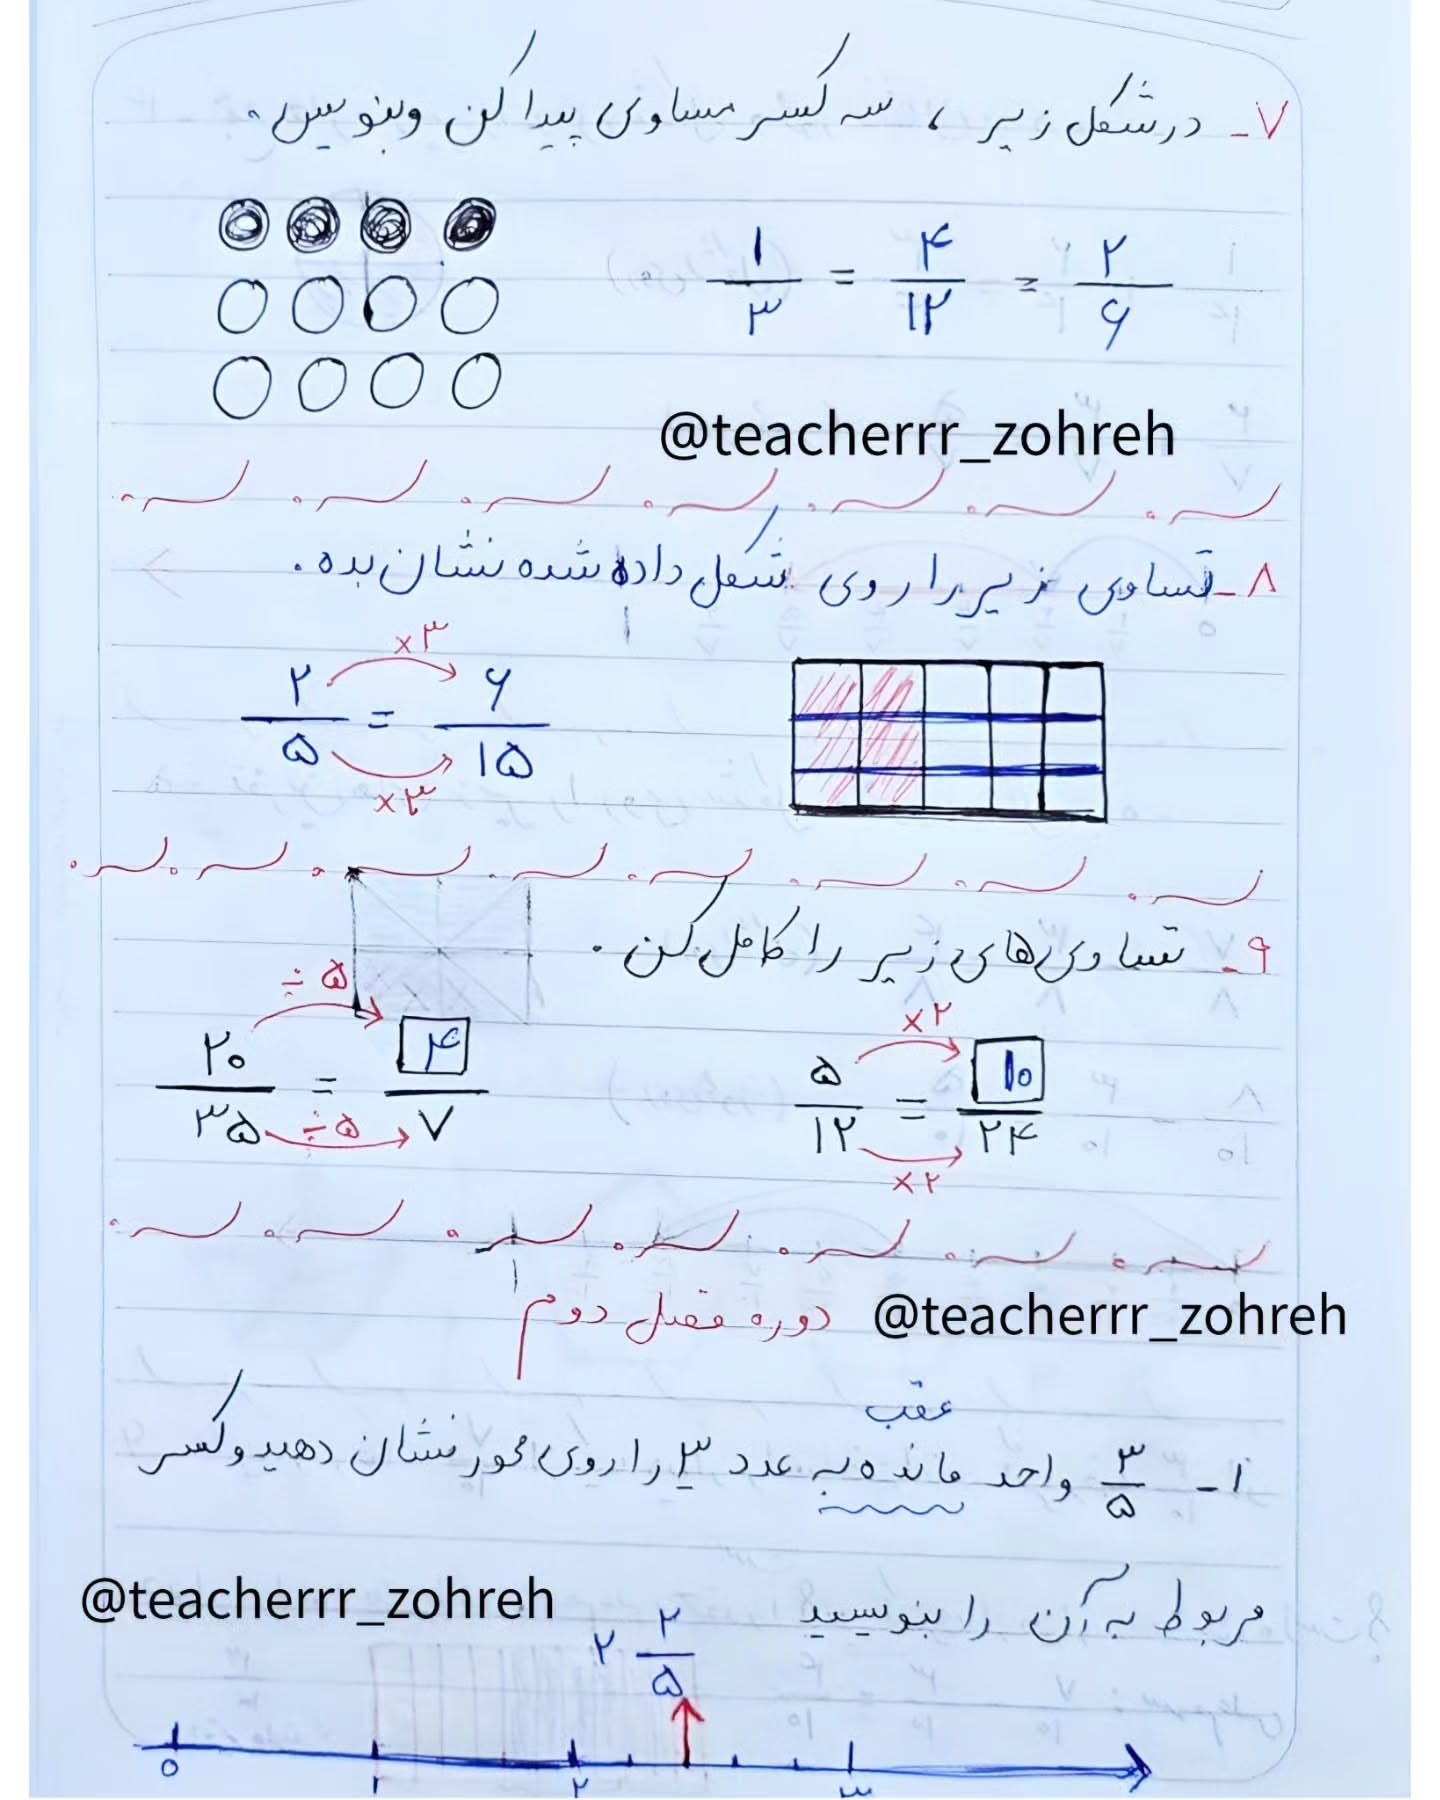 ۷- در شکل زیر ، سه کسر مساوی پیدا کن و بنویس.
۱/۳ = ۴/۱۲ = ۲/۶
@teacherrr_zohreh
۸- تساوی زیر را روی شکل داده شده نشان بده.
×۳
۲/۵ = ۶/۱۵
×۳
۹- تساوی های زیر را کامل کن.
×۲
۵/۱۲ = ۱۰/۲۴
×۲
÷۵
۲۰/۳۵ = ۴/۷
÷۵
دوره فصل دوم
@teacherrr_zohreh
عقب
۱- ۳/۵ واحد مانده به عدد ۳ را روی محور نشان دهید و کسر
مربوط به آن را بنویسید
@teacherrr_zohreh
۲ ۲/۵
۰ ۱ ۲ ۳